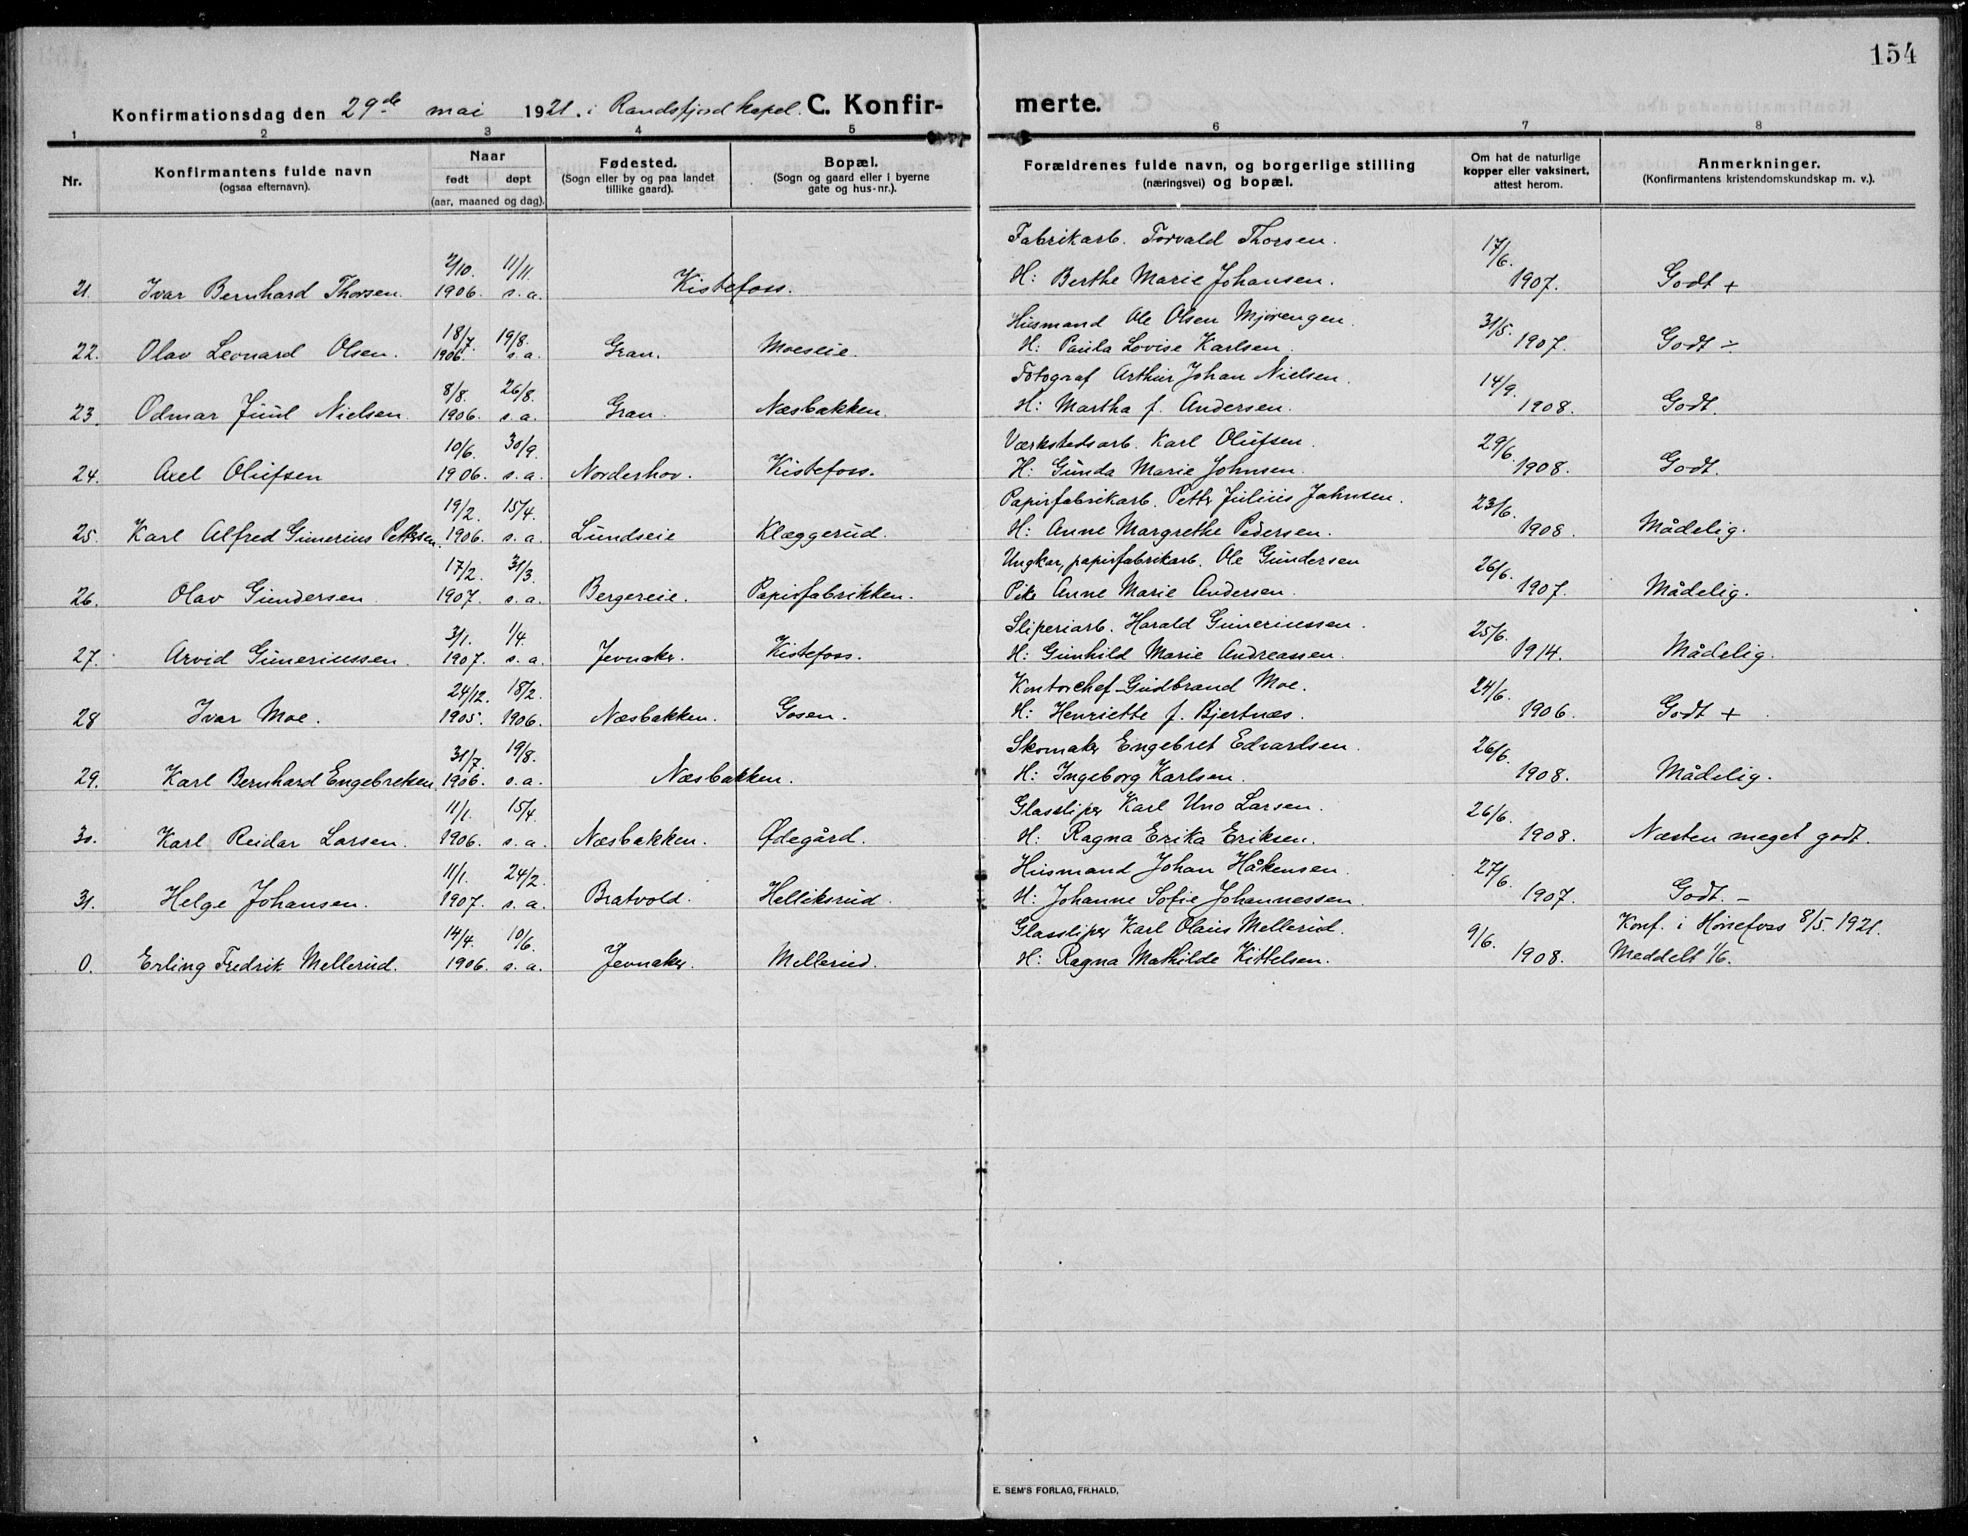 154
Konfirmationsdag den 29de mai 1921. i Randsfjord kapel. C. Konfir- merte.
1 2 3 4 5 6 7 8
Nr. Konfirmantens fulde navn (ogsaa efternavn). Naar født døpt (aar, maaned og dag). Fødested. (Sogn eller by og paa landet tillike gaard). Bopæl. (Sogn og gaard eller i byerne gate og hus-nr.). Forældrenes fulde navn, og borgerlige stilling (næringsvei) og bopæl. Om hat de naturlige kopper eller vaksinert, attest herom. Anmerkninger. (Konfirmantens kristendomskundskap m. v.).
2/10. 11/11. Fabrikarb. Torvald Thorsen. 17/6.
21. Ivar Bernhard Thorsen. 1906. s. a. Kistefoss. H: Berthe Marie Johansen. 1907. Godt +
18/7. 19/8. Husmand Ole Olsen Mjørengen. 31/5.
22. Olav Leonard Olsen. 1906. s. a. Gran. Moeseie. H: Paula Lovise Karlsen. 1907. Godt ÷
8/8. 26/8. Fotograf Arthur Johan Nielsen. 14/9.
23. Odmar Juul Nielsen. 1906. s. a. Gran. Næsbakken. H: Martha f. Andersen. 1908. Godt.
10/6. 30/9. Værkstedsarb. Karl Olufsen. 29/6.
24. Axel Olufsen 1906. s. a. Norderhov. Kistefoss. H: Gunda Marie Johnsen. 1908. Godt.
19/2. 15/4. Papirfabrikarb. Petter Julius Jahnsen. 23/6.
25. Karl Alfred Gunerius Pettersen. 1906. s. a. Lundseie Klæggerud. H: Anne Margrethe Pedersen. 1908. Mådelig.
17/2. 31/3. Ungkar, papirfabrikarb. Ole Gundersen 26/6.
26. Olav Gundersen. 1907. s. a. Bergereie. Papirfabrikken. Pike Anne Marie Andersen. 1907. Mådelig.
3/1. 1/4. Sliperiarb. Harald Gunerinssen. 25/6.
27. Arvid Gunerinssen. 1907. s. a. Jevnaker. Kistefoss. H: Gunhild Marie Andreassen. 1914. Mådelig.
24/12. 18/2. Kontorchef Gudbrand Moe. 24/6.
28 Ivar Moe. 1905. 1906. Næsbakken. Gosen. H: Henriette f. Bjertnæs. 1906. Godt +.
31/7. 19/8. Skomaker Engebret Edvartsen. 26/6.
29. Karl Bernhard Engebretsen. 1906. s. a. Næsbakken. H: Ingeborg Karlsen. 1908. Mådelig.
11/1. 15/4. Glassliper Karl Uno Larsen. 26/6.
30. Karl Reidar Larsen. 1906. s. a. Næsbakken. Ødegård. H: Ragna Erika Eriksen. 1908. Næsten meget godt.
11/1. 24/2. Husmand Johan Håkensen. 27/6.
31. Helge Johansen. 1907. s. a. Bratvold. Helliksrud. H: Johanne Sofie Johannessen. 1907. Godt. –
14/4. 10/6. Glassliper Karl Olaus Mellerud. 9/6. Konf. i Hønefoss 8/5. 1921.
0. Erling Fredrik Mellerud. 1906. s. a. Jevnaker. Mellerud. H: Ragna Mathilde Kittelsen. 1908. Meddelt 1/6.
E. SEM'S FORLAG, FR.HALD.